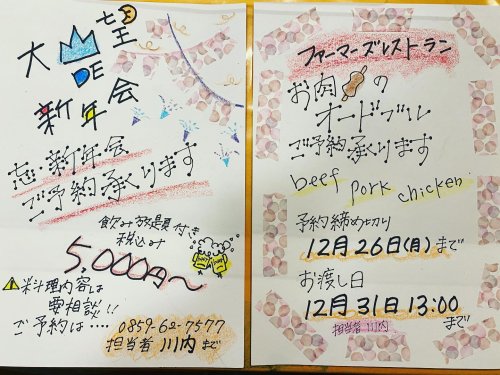 大望
DE
新年会
忘・新年会
ご予約承ります
飲み放題付き
税込み
5,000円～
料理内容は
要相談!!
ご予約は‥‥ 0859-62-7577
担当者 川内まで
ファーマーズレストラン
お肉の
オードブル
ご予約承ります
beef pork chicken
予約締め切り
12月26日(月)まで
お渡し日
12月31日 13:00
まで
担当者 川内